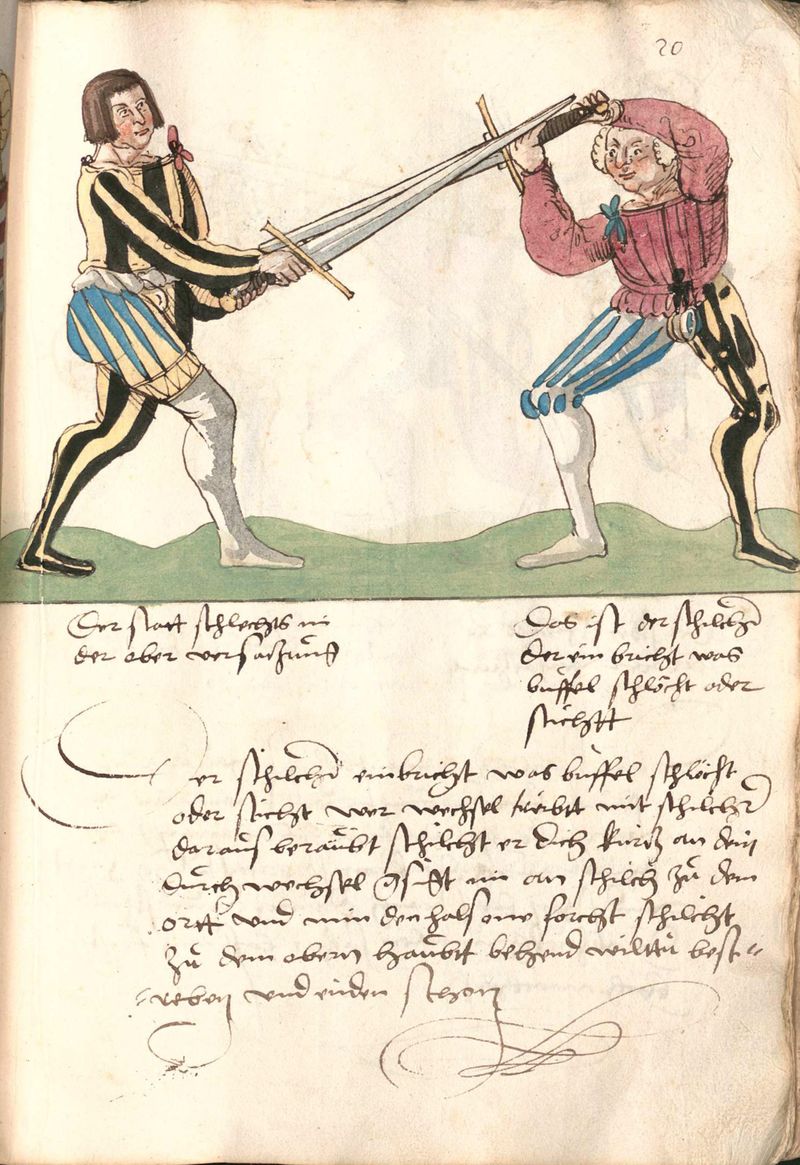 20
Der statt schlechts in
der ober versatzung
Das ist der schilcher
der ein bricht was
büffel schlöcht oder
sticht
er schilcher einbricht was büffel schlöcht
oder sticht wer wechsel treibtt mit schilcher
daraus beraubt schilcht er dich kurtz an dein
durch wechsel gsigt im an schilch zu dem
ortt und nim den hals one forcht schilcht
zu dem obern haubtt behend wiltu best
reben und enden schon